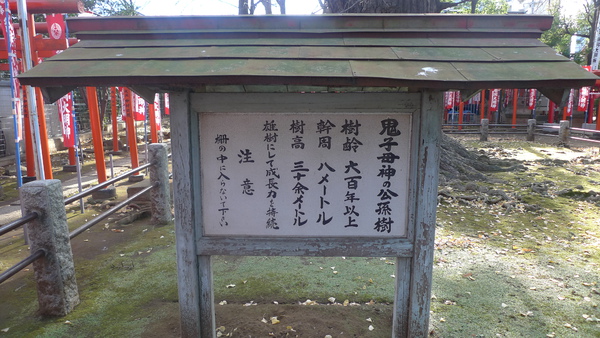 鬼子母神の公孫樹
樹齢 六百年以上
幹周 八メートル
樹高 三十余メートル
雄樹にして成長力を持続
注意
柵の中に入らないで下さい